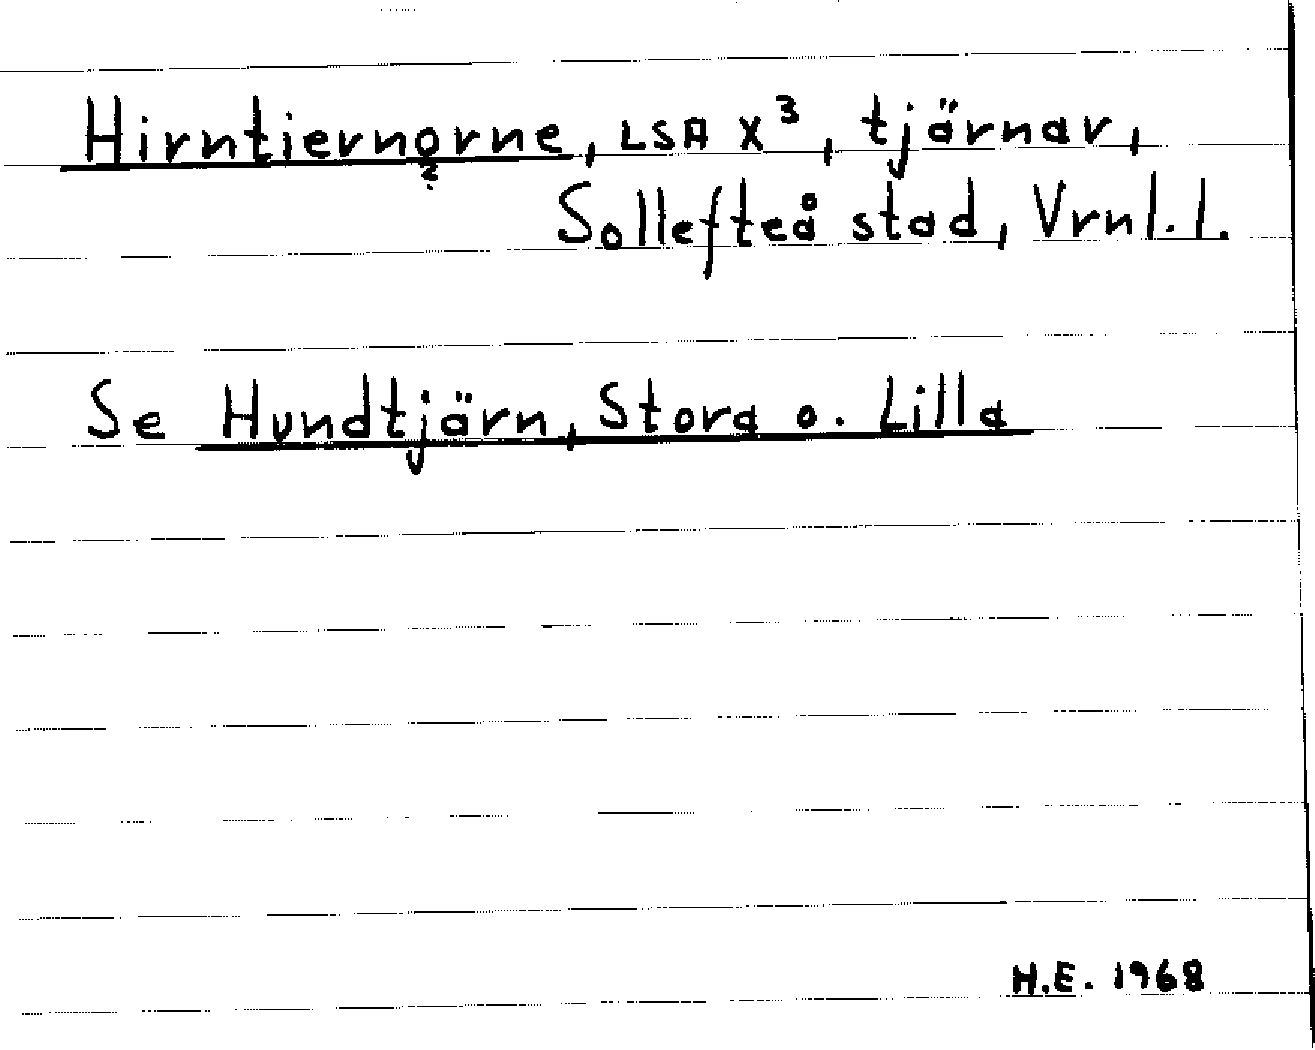 Hirntiernorne, LSA X³, tjärnar,
?
Sollefteå stad, Vrnl.l.
Se Hundtjärn, Stora o. Lilla
H.E. 1968